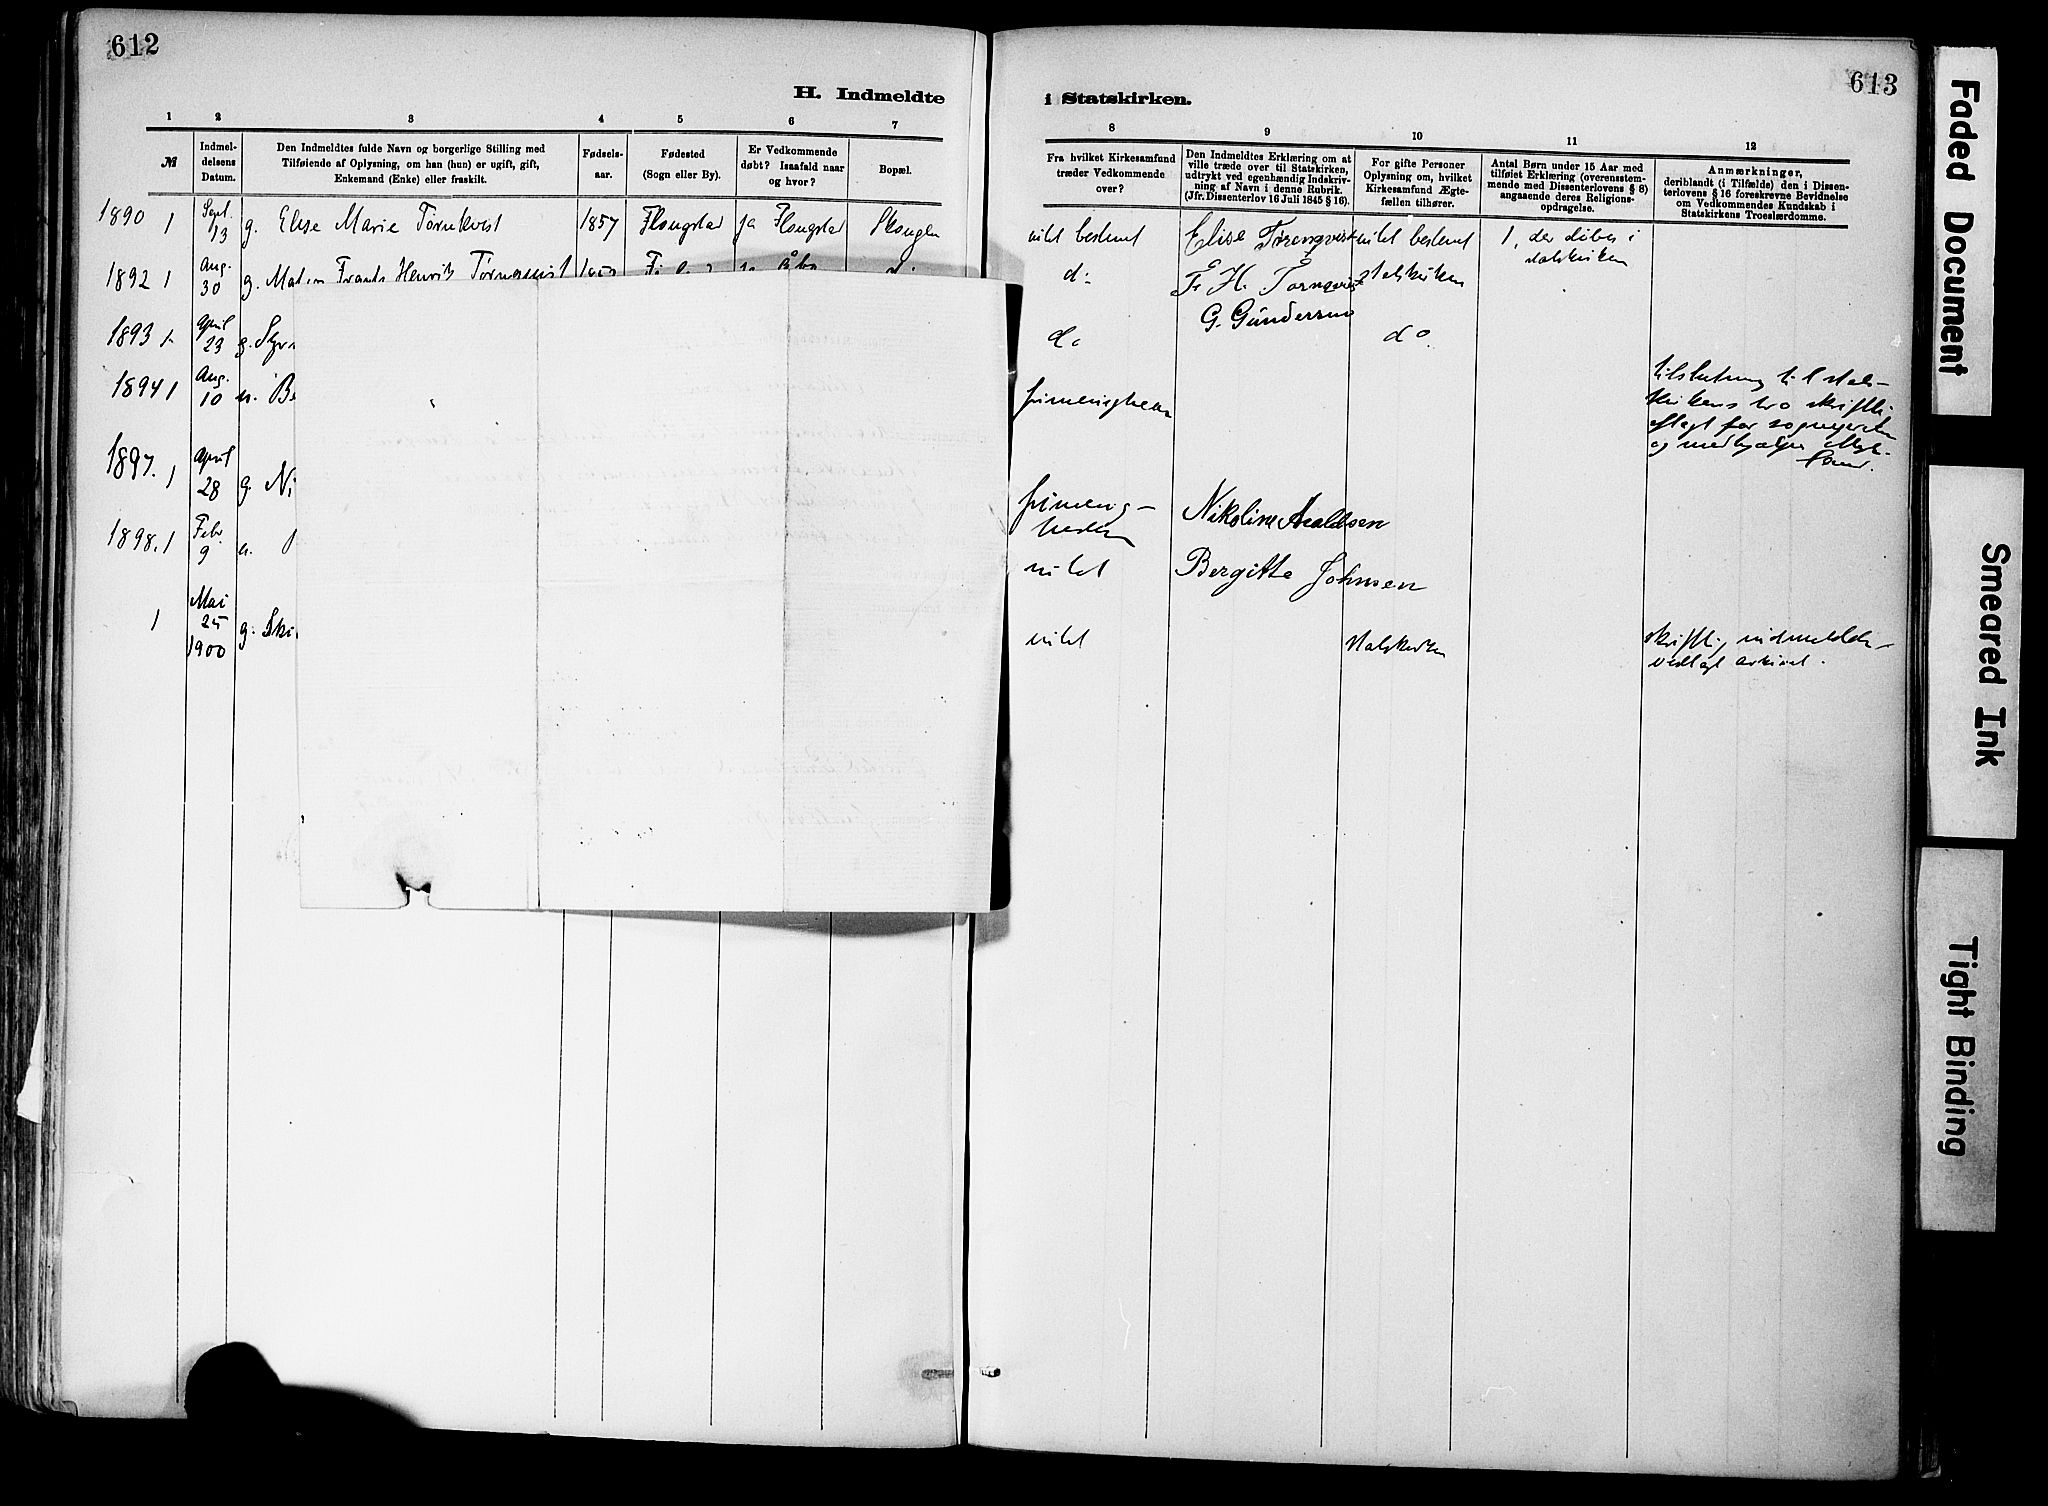 612
H. Indmeldte
1 2 3 4 5 6 7
№
Indmel-
delsens
Datum.
Den Indmeldtes fulde Navn og borgerlige Stilling med
Tilføiende af Oplysning, om han (hun) er ugift, gift,
Enkemand (Enke) eller fraskilt.
Fødsels-
aar.
Fødested
(Sogn eller By).
Er Vedkommende
døbt? Isaafald naar
og hvor?
Bopæl.
1890 1 Sept. 13 g. Elise Marie Törnkvist 1857 Flongstad ja Flongstad
1892 1 Aug. 30 g. Frants Henrik Törnquist
1893 1. April 23 g.
1894 1 Aug. 10 u. Be
1897. 1 April 28 g. Ni
1898. 1 Febr. 9 u.
1 Mai 25 1900 g. Ski
613
i Statskirken.
8 9 10 11 12
Fra hvilket Kirkesamfund
træder Vedkommende
over?
Den Indmeldtes Erklæring om at
ville træde over til Statskirken,
udtrykt ved egenhændig Indskriv-
ning af Navn i denne Rubrik.
(Jfr. Dissenterlov 16 Juli 1845 § 16).
For gifte Personer
Oplysning om, hvilket
Kirkesamfund Ægte-
fællen tilhører.
Antal Børn under 15 Aar med
tilføiet Erklæring (overensstem-
mende med Dissenterlovens § 8)
angaaende deres Religions-
opdragelse.
Anmærkninger,
deriblandt (i Tilfælde) den i Dissen-
terlovens § 16 foreskrevne Bevidnelse
om Vedkommendes Kundskab i
Statskirkens Troeslærdomme.
intet bestemt Elise Törenqvist intet bestemt 1, der døbes i
statskirken
d: F. H. Törnqvist statskirken
G. Gundersen
d. do.
frimenigheden
tilslutning til stats-
kirkens tro skriftlig
aflagt for sognepresten
og medhjælper
frimenig-
heden Nikoline Avaldsen
intet Bergitte Johnsen
intet statskirken skriftlig indmeldelse
vedlagt arkivet.
Faded Document
Smeared Ink
Tight Binding